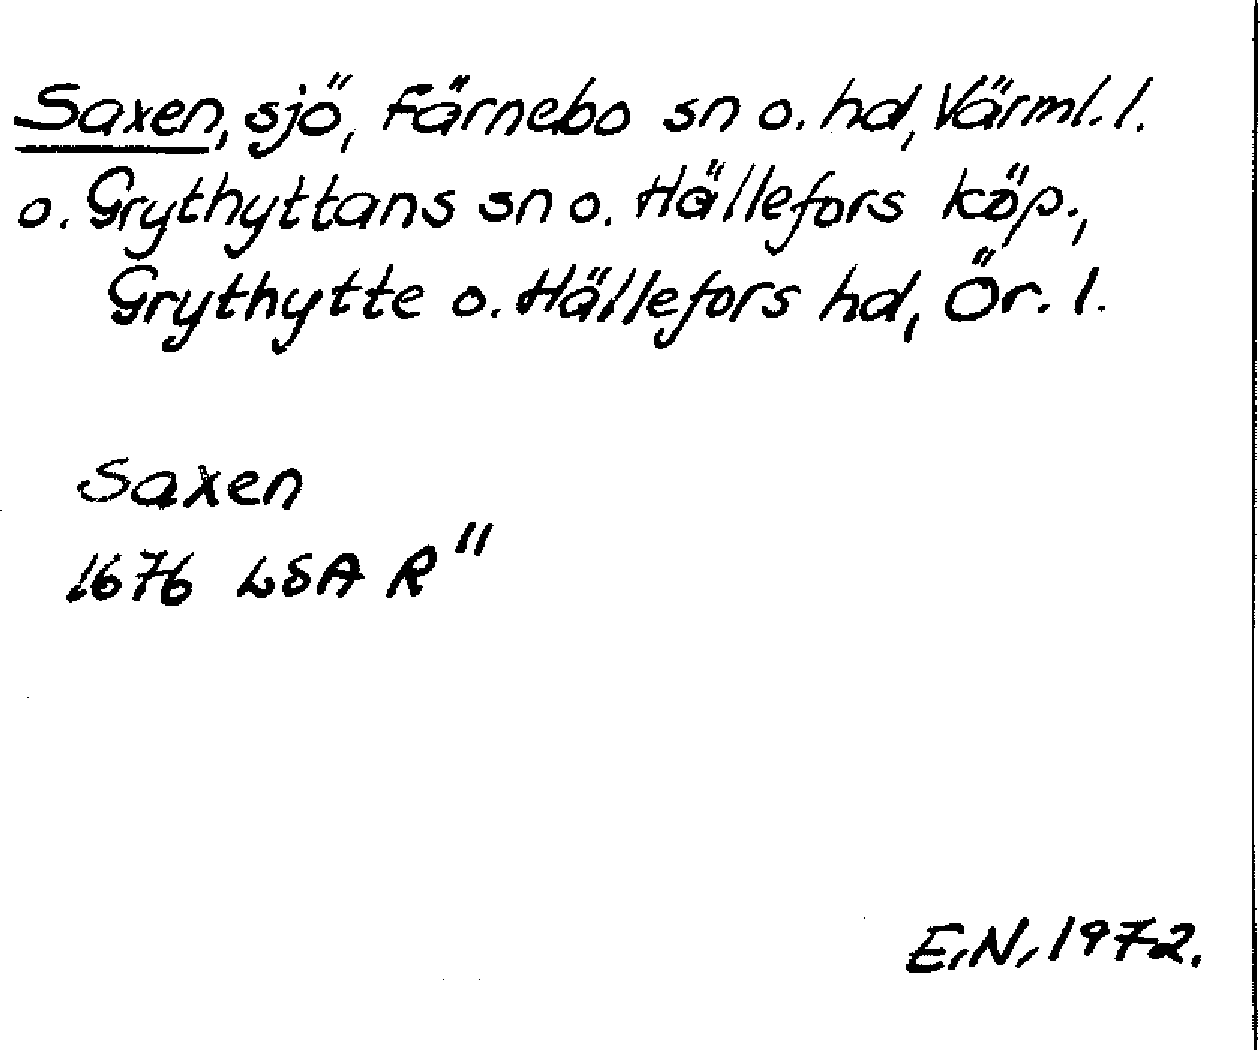 Saxen, sjö, Färnebo sn o. hd, Värml. l.
o. Grythyttans sn o. Hällefors köp.,
Grythytte o. Hällefors hd, Ör. l.
Saxen
1676 LSA R"
E.N. 1972.